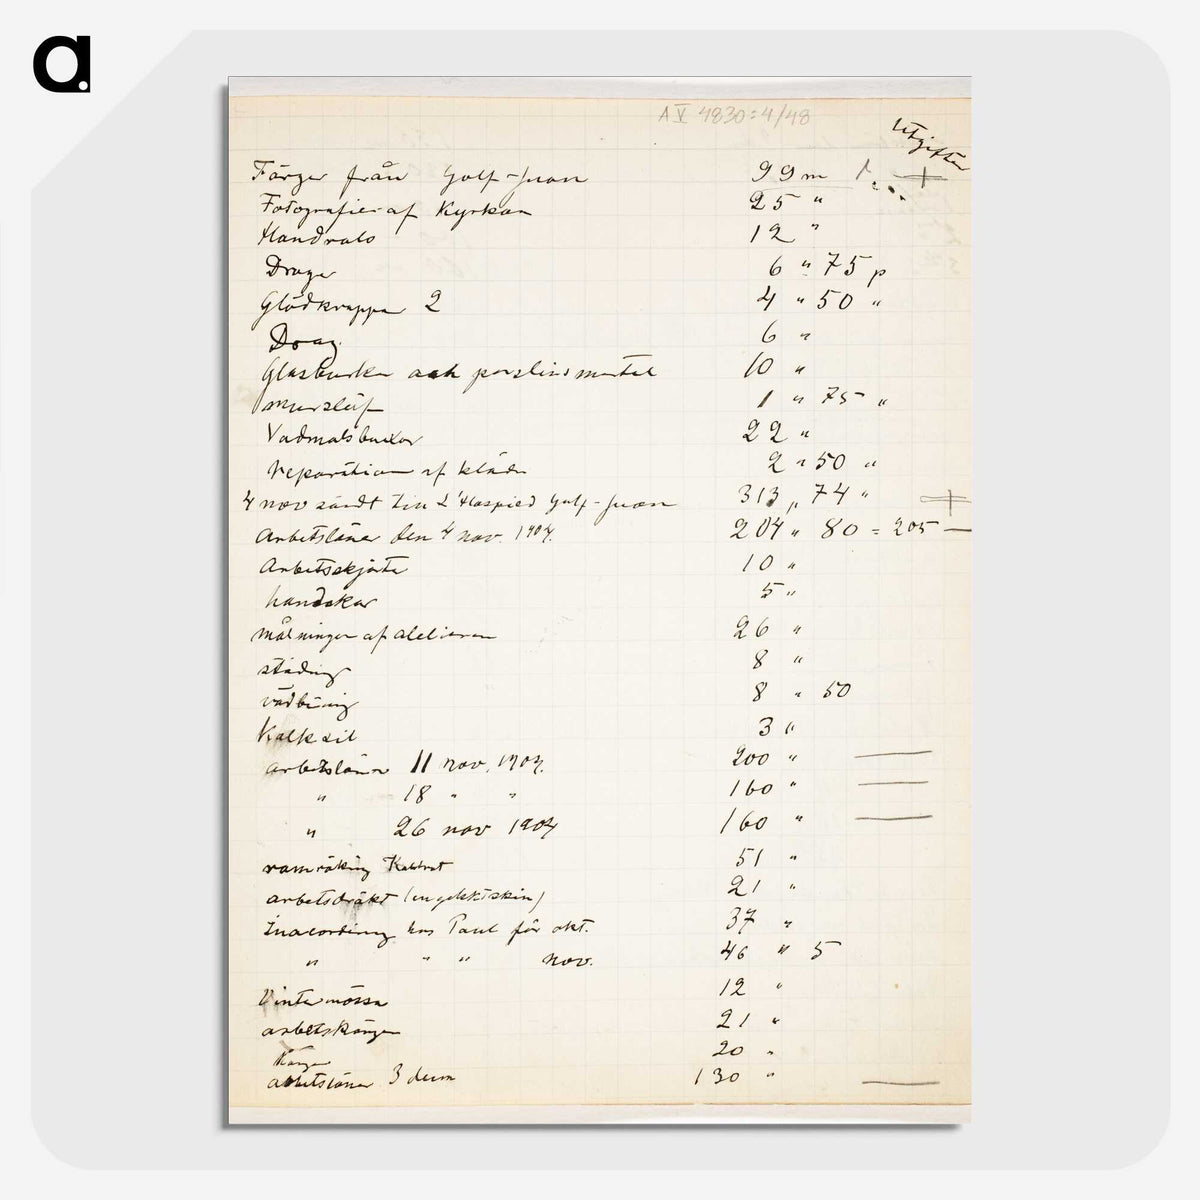 a.
A V 4830:4/48
Utgifter
Färger från Golf-Juan 99 m
Fotografier af Kyrkan 25 "
Handrato 12 "
Drager 6 " 75 p
Glödkroppa 2 4 " 50 "
6 "
Glasburkar och porslinsmortel 10 "
murslef 1 " 75 "
Vadmalsbuxor 22 "
reparation af kläder 2 " 50 "
4 nov sändt till L'Hospied Golf-Juan 313 " 74 "
Arbetslöner den 4 nov. 1904. 204 " 80 = 205 —
Arbetsskjorta 10 "
handskar 5 "
målningen af atelieren 26 "
städning 8 "
vedbäring 8 " 50
Kalksil 3 "
arbetslöner 11 nov. 1904. 200 "
" 18 " " 160 "
" 26 nov 1904 160 "
51 "
arbetsdräkt ( ) 21 "
Inacordering hos Paul för okt. 37 "
" " " nov. 46 " 5
Vintermössa 12 "
arbetskängor 21 "
Kängor 20 "
arbetslöner 3 decem 130 "